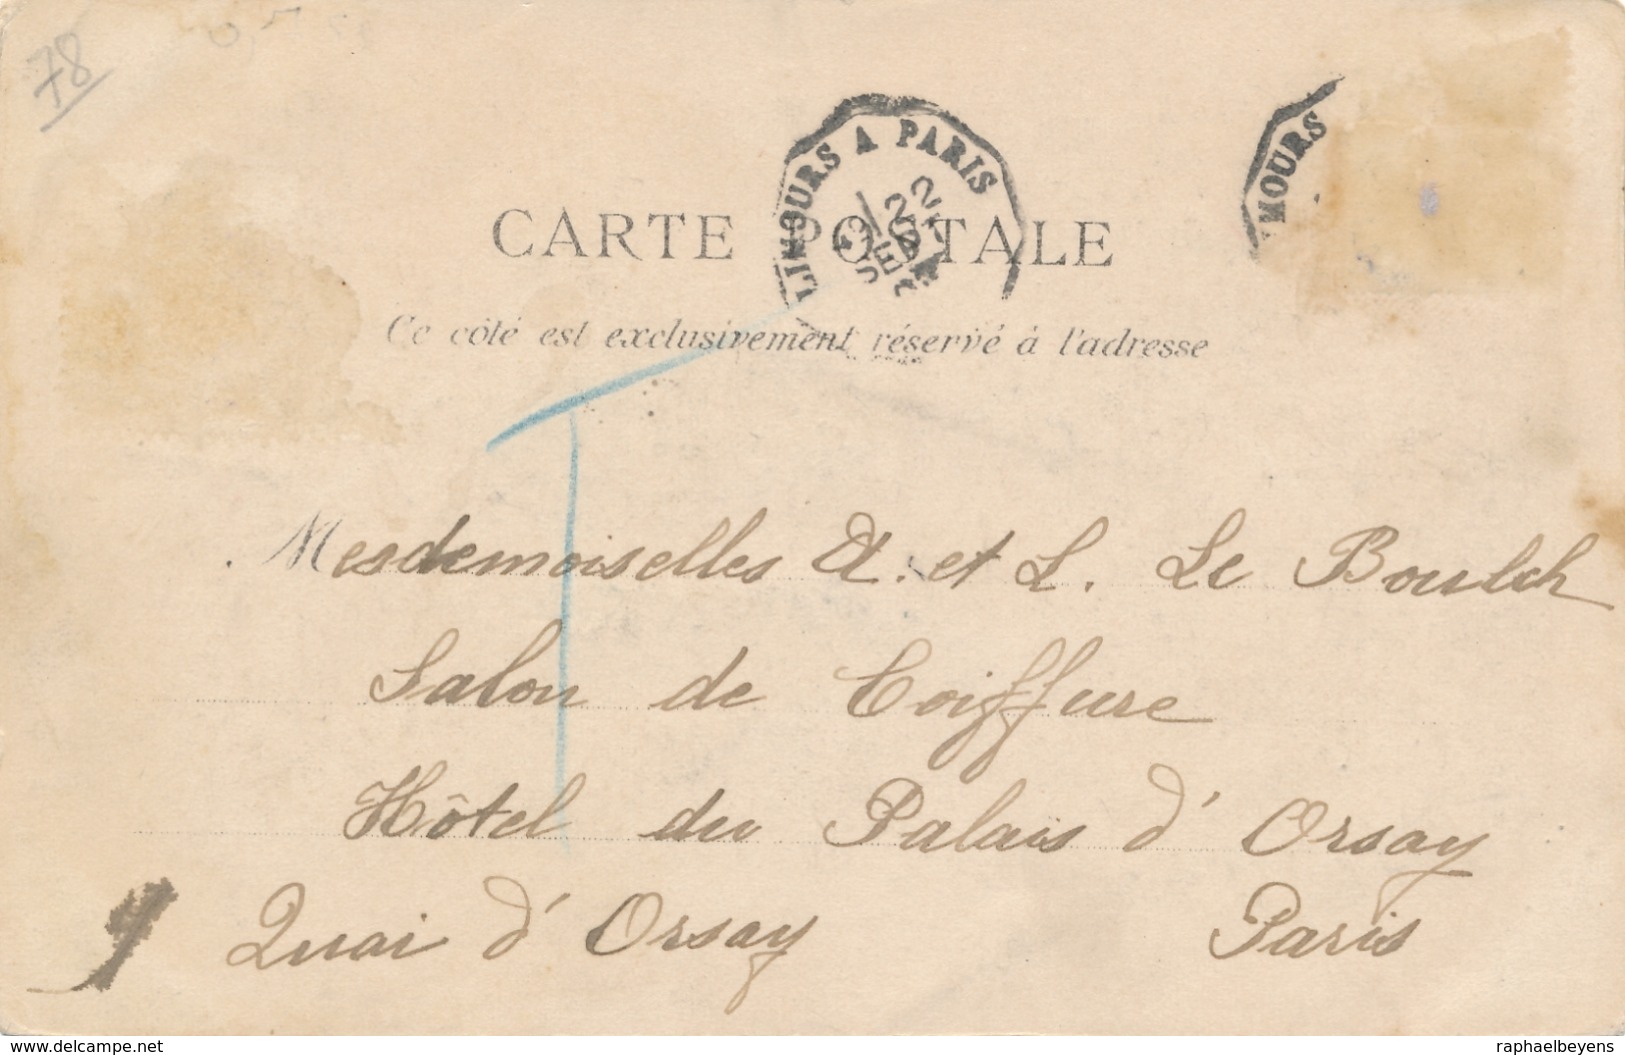 78
LIMOURS A PARIS
MOURS
2
SEPT
CARTE POSTALE
Ce côté est exclusivement réservé à l'adresse
T
Mesdemoiselles A. et L. Le Boulch
Salon de Coiffure
Hôtel du Palais d'Orsay
9 Quai d'Orsay Paris
www.delcampe.net
raphaelbeyens